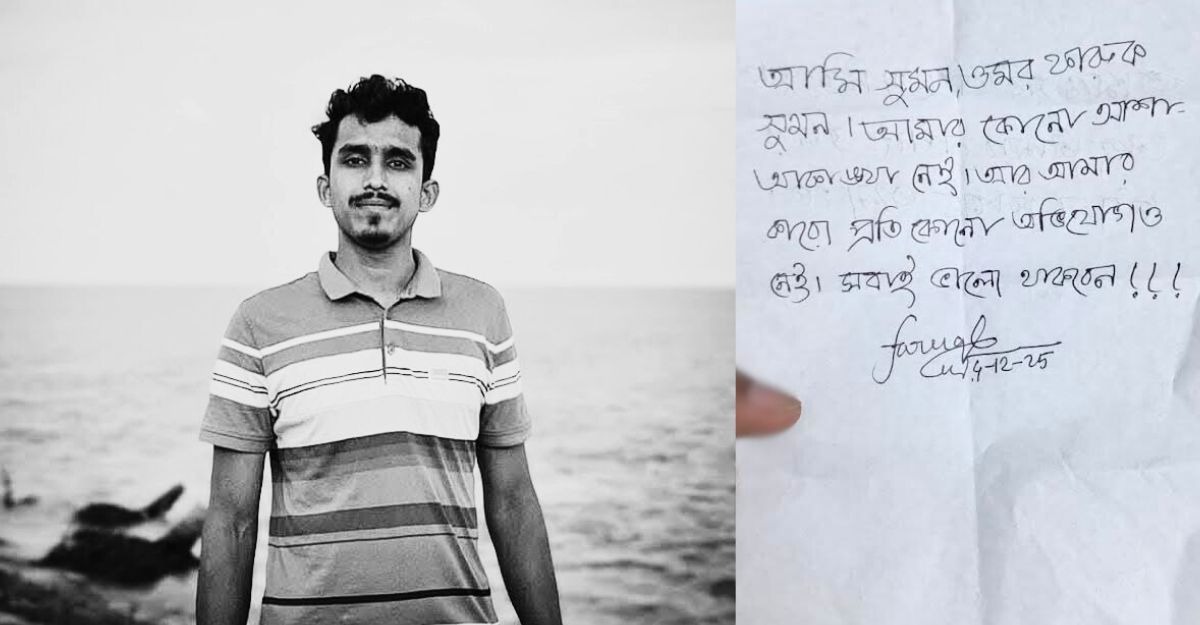 আমি সুমন, ওমর ফারুক
সুমন। আমার কোনো আশা-
আকাঙ্খা নেই। আর আমার
কারো প্রতি কোনো অভিযোগও
নেই। সবাই ভালো থাকবেন!!!
faruqe
-12-25